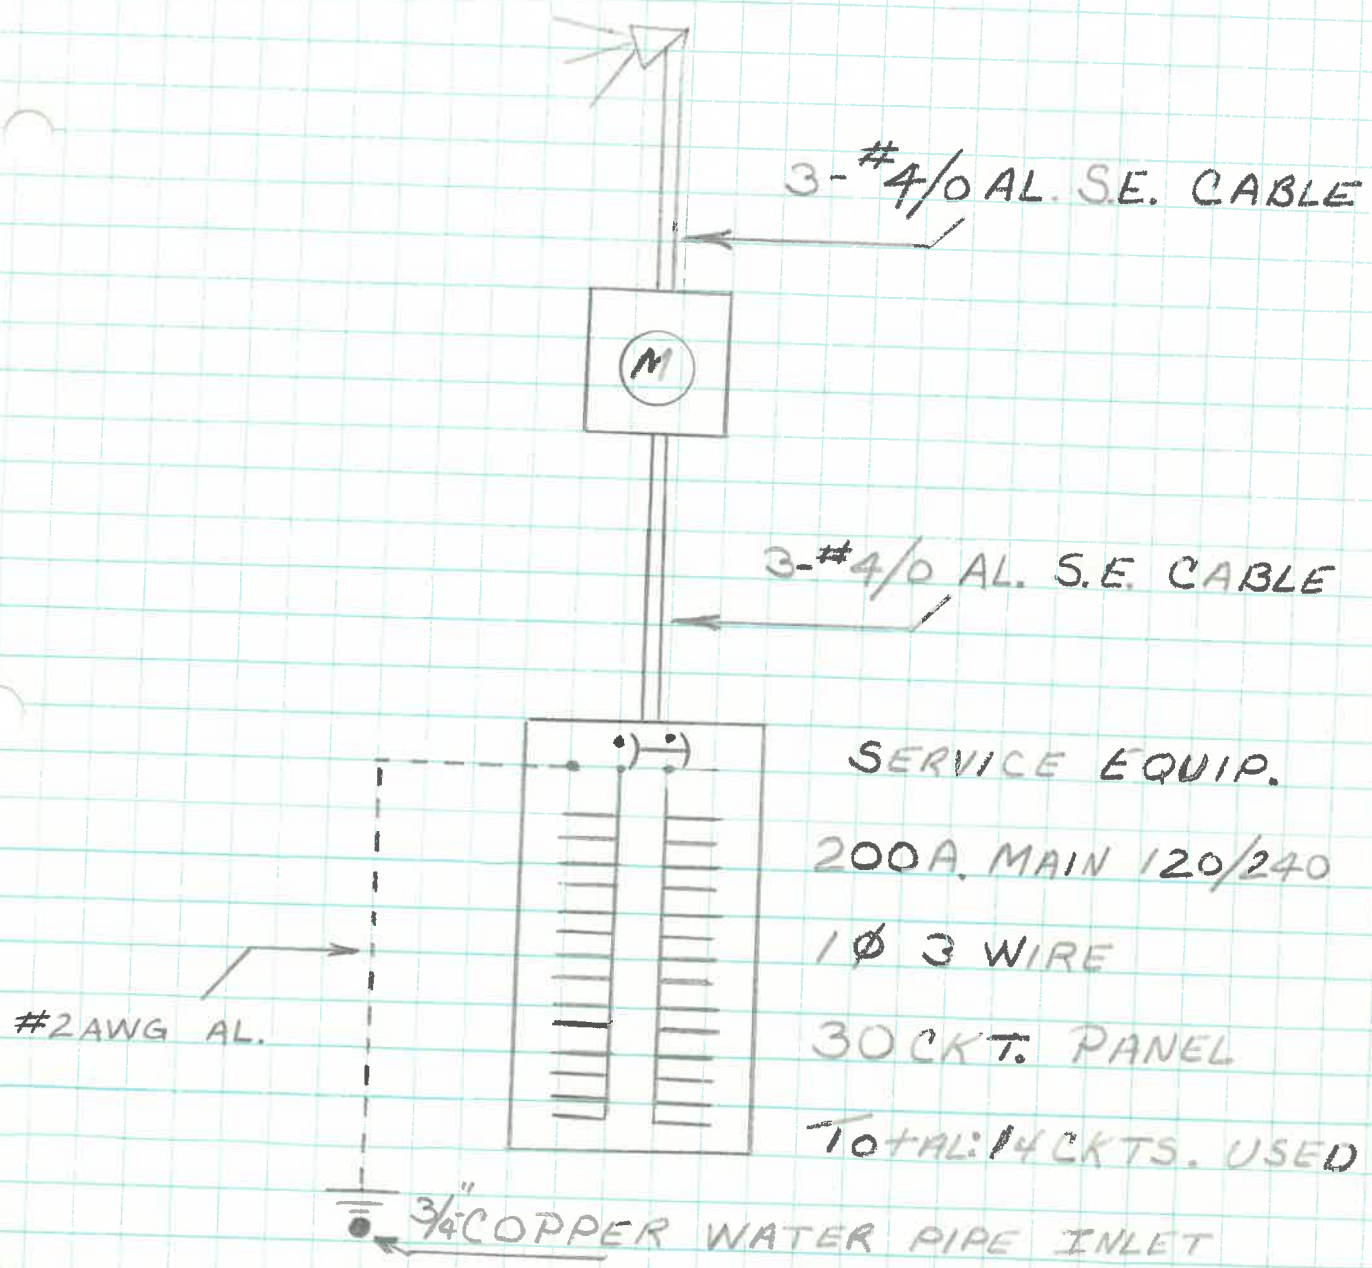 3-#4/0 AL. S.E. CABLE
M
3-#4/0 AL. S.E. CABLE
SERVICE EQUIP.
200A. MAIN 120/240
1Ø 3 WIRE
30 CKT. PANEL
TOTAL: 14 CKTS. USED
#2 AWG AL.
3/4" COPPER WATER PIPE INLET